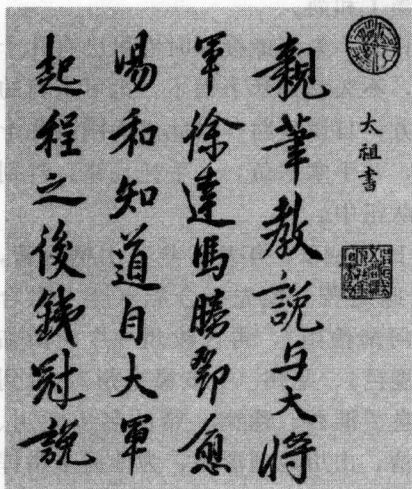 太祖書
親筆教說与大將
軍徐達馮勝鄧愈
湯和知道自大軍
起程之後銕冠說